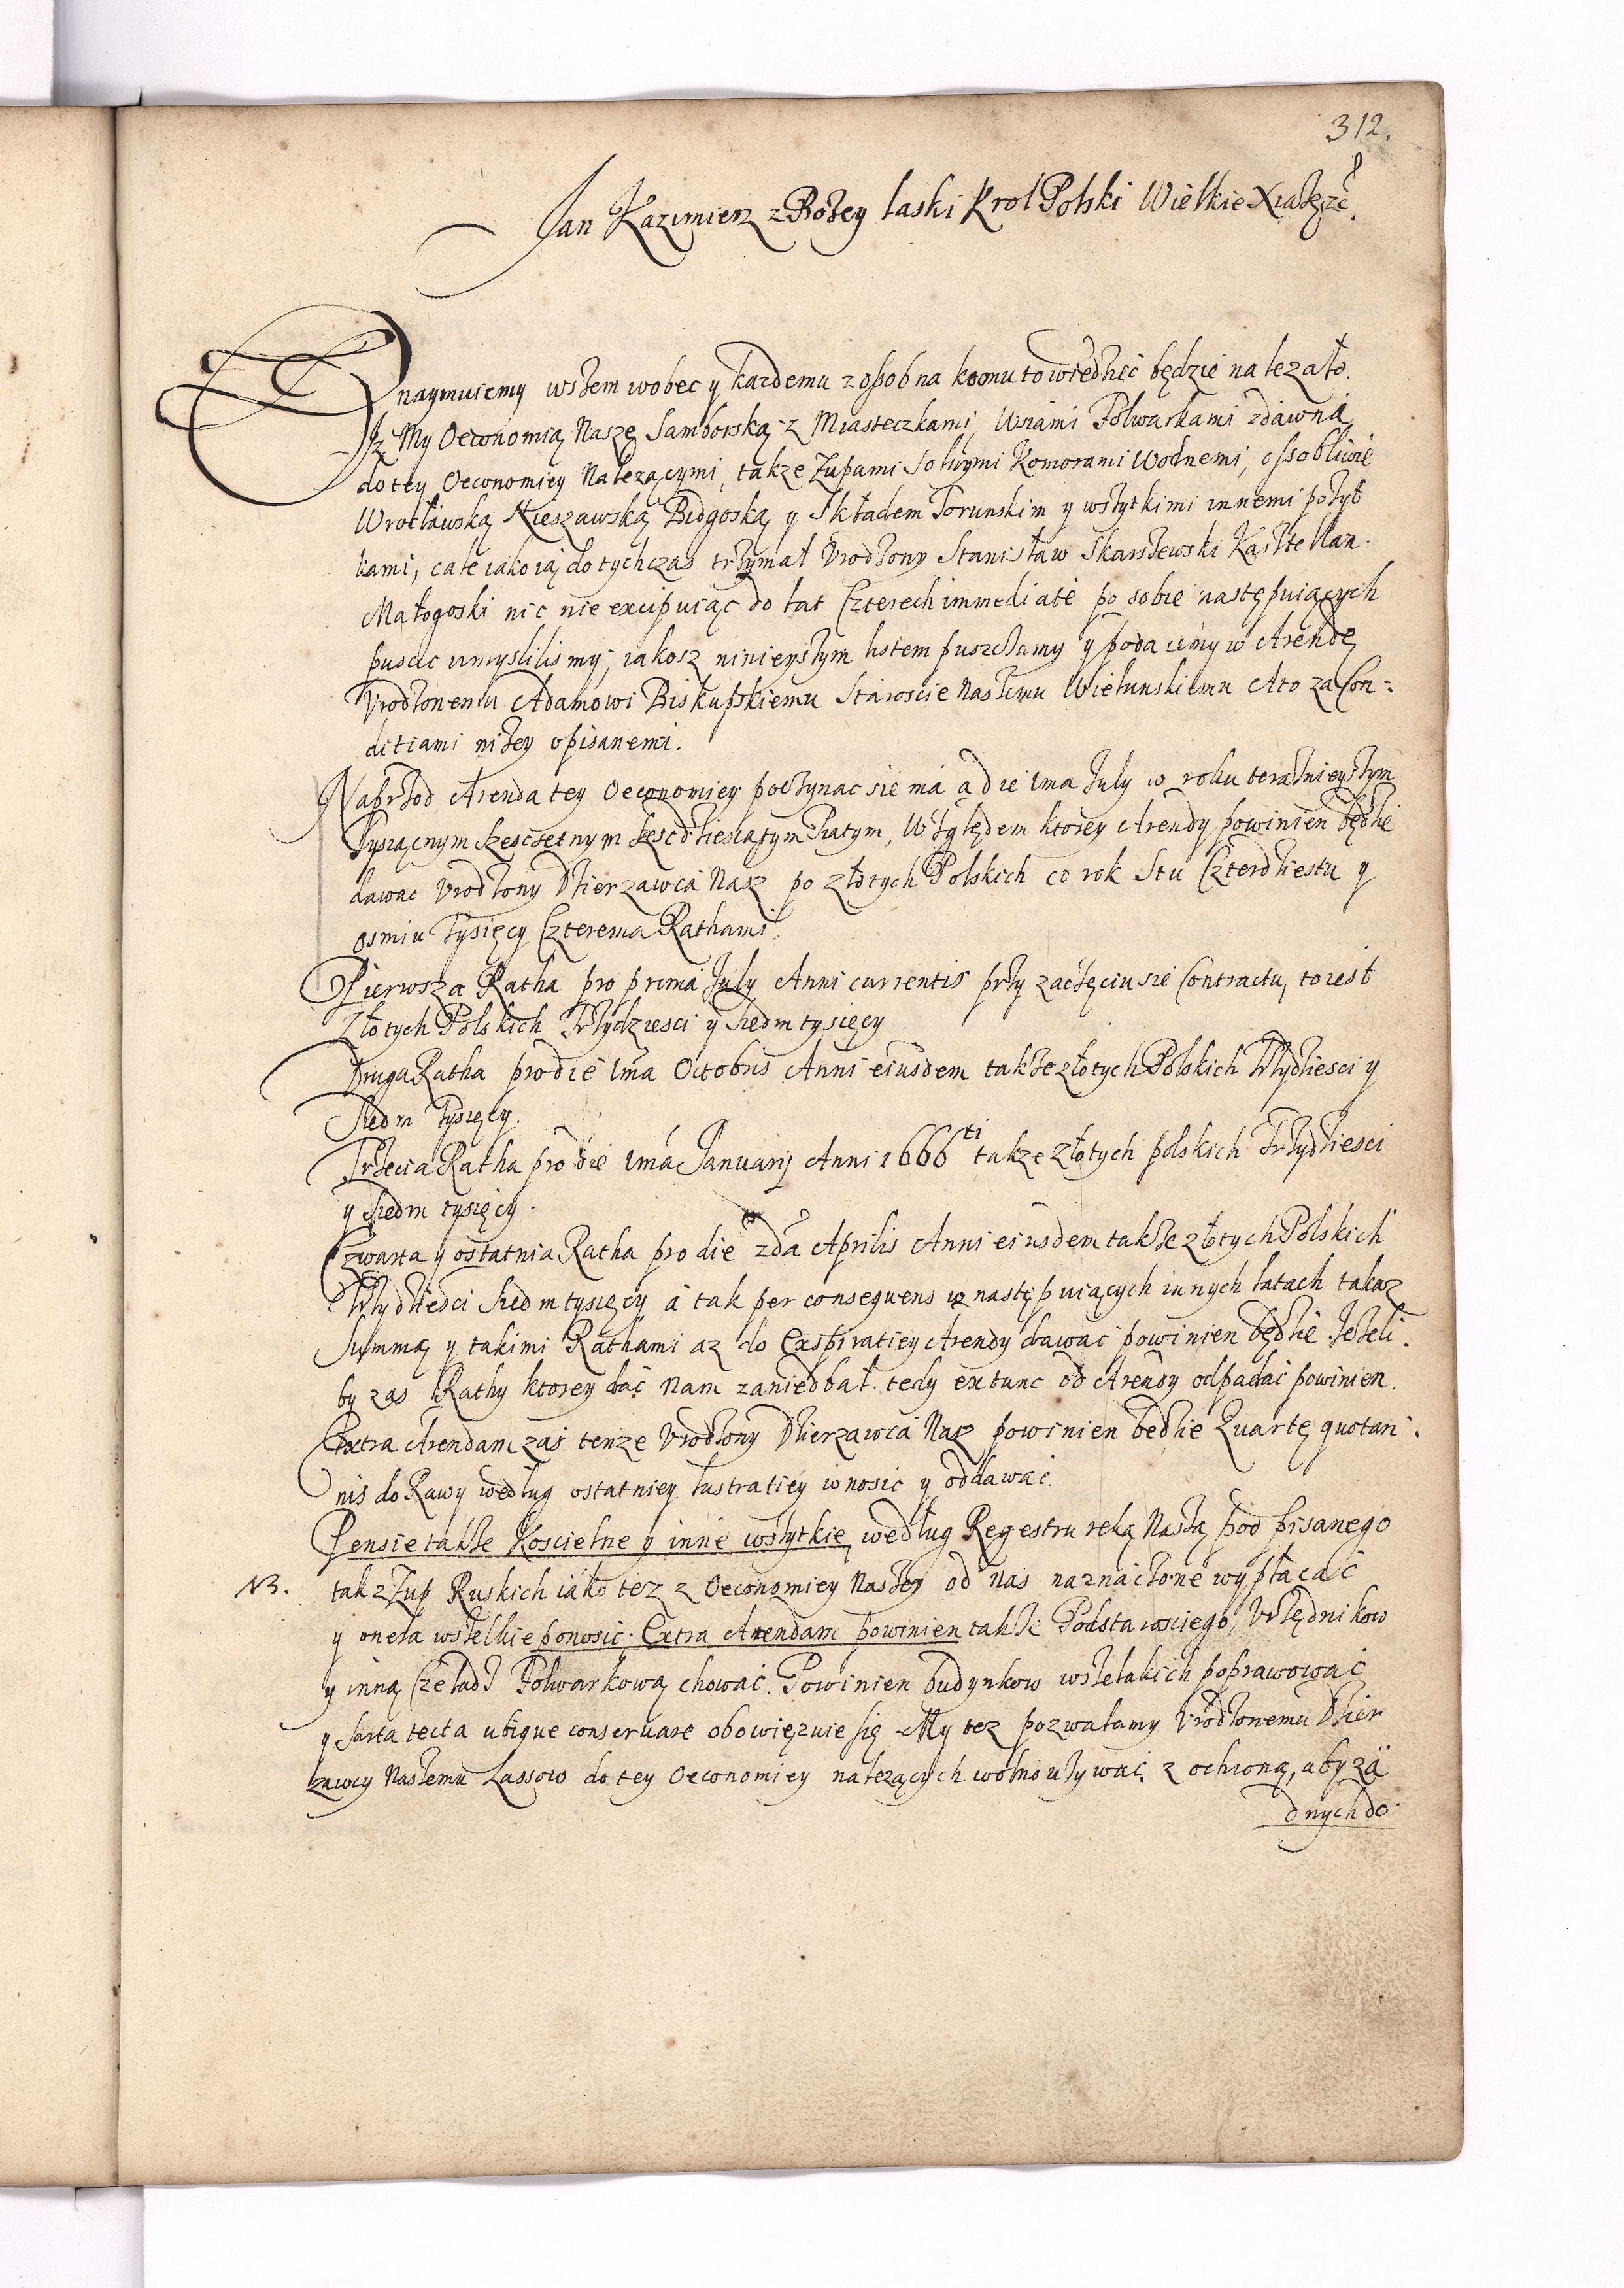 312.
Jan Kazimierz z Bożey łaski Krol Polski Wielkie Xiążę etc.
Oznaymuiemy wszem wobec y kazdemu z ossobna komu to wiedzieć będzie nalezało.
Iz My Oeconomią Naszę Samborską z Miasteczkami, Wsiami Folwarkami zdawna
do tey Oeconomiey Nalezącymi, takze Zupami Solnymi Komorami Wodnemi, ossobliwie
Wrocławską Nieszawską Bidgoską y Składem Torunskim y wszytkimi innemi pożyt
kami, cale iako ią dotychczas trzymał Urodzony Stanisław Skarszewski Kasztellan
Małogoski nic nie excipuiąc do lat Czterech immediate po sobie następuiących
puscic umyslilismy, iakosz ninieyszym listem puszczamy y podaiemy w Arendę
Urodzonemu Adamowi Biskupskiemu Staroscie Naszemu Wielunskiemu A to za Con=
ditiami niżey opisanemi.
Naprzod Arenda tey Oeconomiey poczynac sie ma a die 1ma July w roku teraznieyszym
Tysiącnym szescsetnym szescdziesiątym Piątym, Względem ktorey Arendy powinien będzie
dawac Urodzony Dzierzawca Nasz po złotych Polskich co rok Stu Czterdziestu y
osmiu Tysięcy Czterema Rathami.
Pierwsza Ratha pro prima July Anni currentis przy zaczęciu sie Contractu, to iest
Złotych Polskich Trzydziesci y siedm tysięcy
Druga Ratha pro die 1ma Octobris Anni eiusdem także złotych Polskich Trzydziesci y
Siedm Tysięcy.
Trzecia Ratha pro die 1ma Januarij Anni 1666ti takze złotych polskich Trzydziesci
y siedm tysięcy.
Czwarta y ostatnia Ratha pro die 2da Aprilis Anni eiusdem także złotych Polskich
Trzydziesci siedm tysięcy a tak per consequens w następuiących innych latach takaz
Summą y takimi Rathami az do Exspiratiey Arendy dawać powinien będzie. Jeżeli
by zas Rathy ktorey dać Nam zaniedbał. tedy ex tunc od Arendy odpadać powinien.
Extra Arendam zaś tenze Urodzony Dzierzawca Nasz powinien będzie Kwartę quotan
nis do Rawy według ostatniey lustratiey wnosić y oddawać.
Pensie także Koscielne y inne wszytkie, według Regestru ręką Naszą pod pisanego
NB. tak z Zup Ruskich iako tez z Oeconomiey Naszey od Nas naznaczone wypłacać
y onera wszelkie ponosic. Extra Arendam powinien także Podstarosciego, Urzędnikow
y inną Czeladź Folwarkową chować. Powinien budynkow wszelakich poprawować
y sarta tecta ubique conservare obowięzuie się. My tez pozwalamy Urodzonemu Dzier
zawcy Naszemu Lassow do tey Oeconomiey nalezących wolno używać, z ochroną, aby za
dnych do